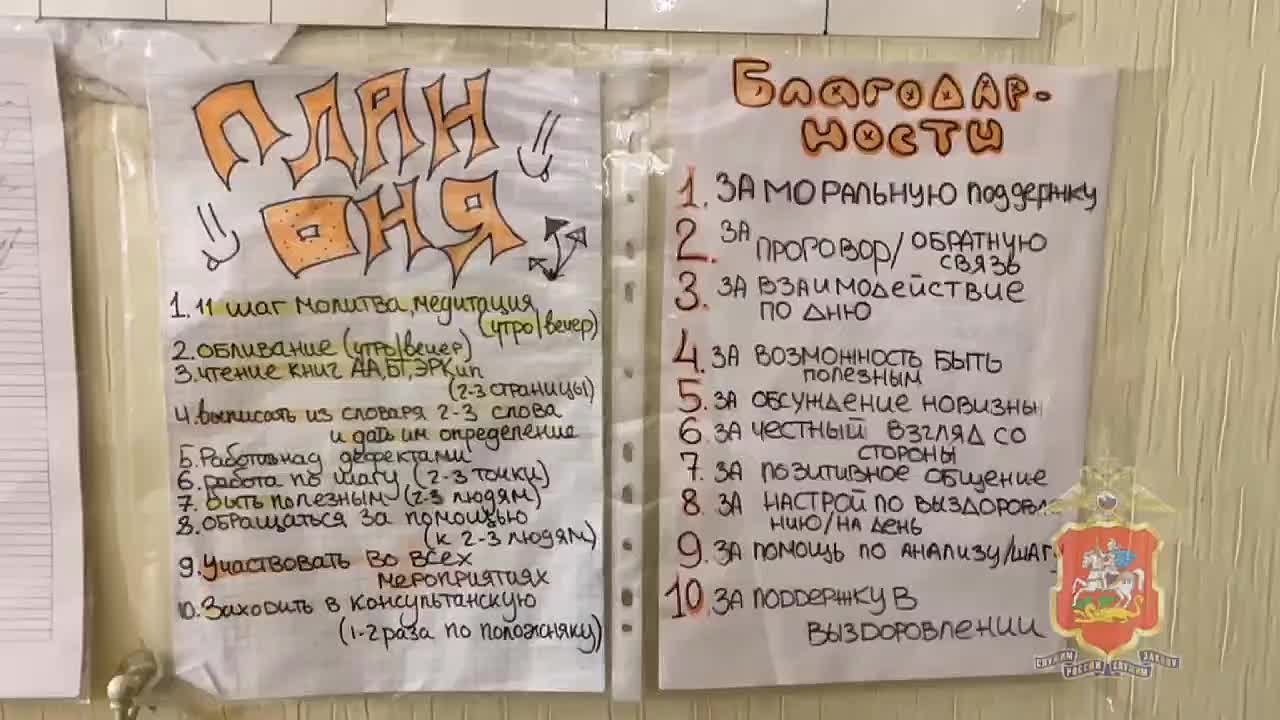 ПЛАН
ДНЯ
1. 11 шаг молитва, медитация
(утро/вечер)
2. обливание (утро/вечер)
3. чтение книг АА, БТ, ЭРКип
(2-3 страницы)
4. выписать из словаря 2-3 слова
и дать им определение
5. Работа над дефектами
6. работа по шагу (2-3 точки)
7. быть полезным (2-3 людям)
8. обращаться за помощью
(к 2-3 людям)
9. Участвовать во всех
мероприятиях
10. Заходить в консультанскую
(1-2 раза по положняку)
Благодар-
ности
1. ЗА МОРАЛЬНУЮ поддержку
2. ЗА ПРОГОВОР/ОБРАТНУЮ
СВЯЗЬ
3. ЗА ВЗАИМОДЕЙСТВИЕ
ПО ДНЮ
4. ЗА ВОЗМОННОСТЬ БЫТЬ
ПОЛЕЗНЫМ
5. ЗА ОБСУЖДЕНИЕ НОВИЗНЫ
6. ЗА ЧЕСТНЫЙ ВЗГЛЯД СО
СТОРОНЫ
7. ЗА ПОЗИТИВНОЕ ОБЩЕНИЕ
8. ЗА НАСТРОЙ ПО ВЫЗДОРОВЛ
НИЮ/НА ДЕНЬ
9. ЗА ПОМОЩЬ ПО АНАЛИЗУ/ШАГУ
10 ЗА ПОДДЕРЖКУ В
ВЫЗДОРОВЛЕНИИ
СЛУЖИМ РОССИИ СЛУЖИМ ЗАКОНУ